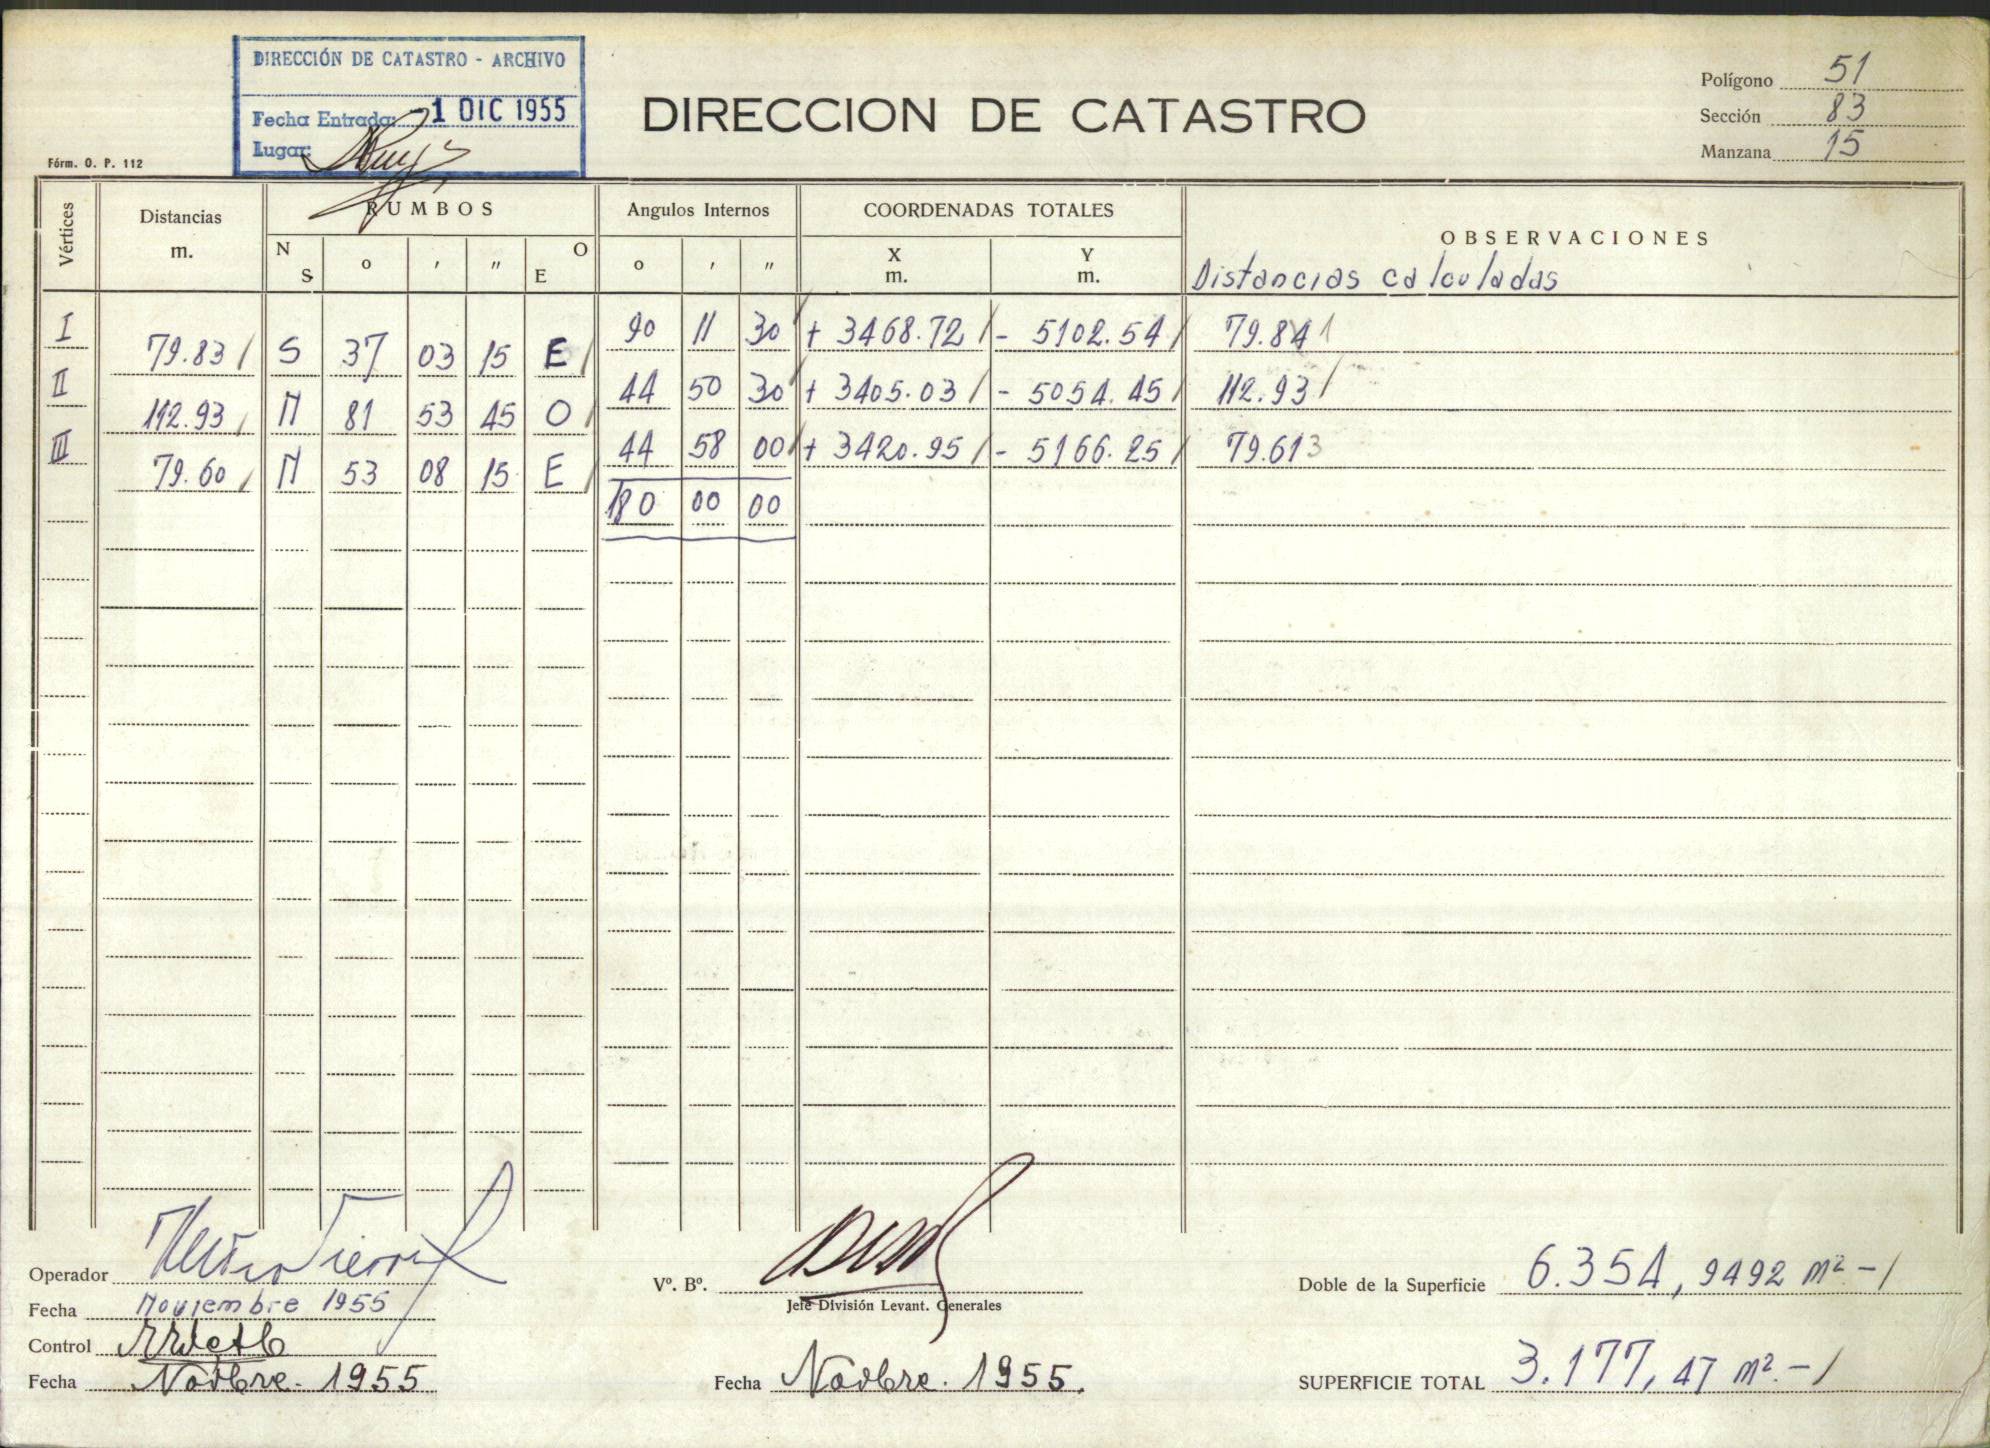 DIRECCIÓN DE CATASTRO - ARCHIVO
Fecha Entrada: 1 DIC 1955
Lugar:
Fórm. O. P. 112
DIRECCION DE CATASTRO
Polígono 51
Sección 83
Manzana 15
Vértices
Distancias m.
RUMBOS
N S o ' " O E
Angulos Internos
o ' "
COORDENADAS TOTALES
X m. Y m.
OBSERVACIONES
Distancias calculadas
I 90 11 30 + 3468.72 - 5102.54 79.84
79.83 S 37 03 15 E
II 44 50 30 + 3405.03 - 5054.45 112.93
112.93 N 81 53 45 O
III 44 58 00 + 3420.95 - 5166.25 79.613
79.60 N 53 08 15 E
180 00 00
Operador
Fecha Noviembre 1955
Control
Fecha Novbre. 1955
Vº. Bº.
Jefe División Levant. Generales
Fecha Novbre. 1955.
Doble de la Superficie 6.354,9492 m² -/
SUPERFICIE TOTAL 3.177,47 m². -/